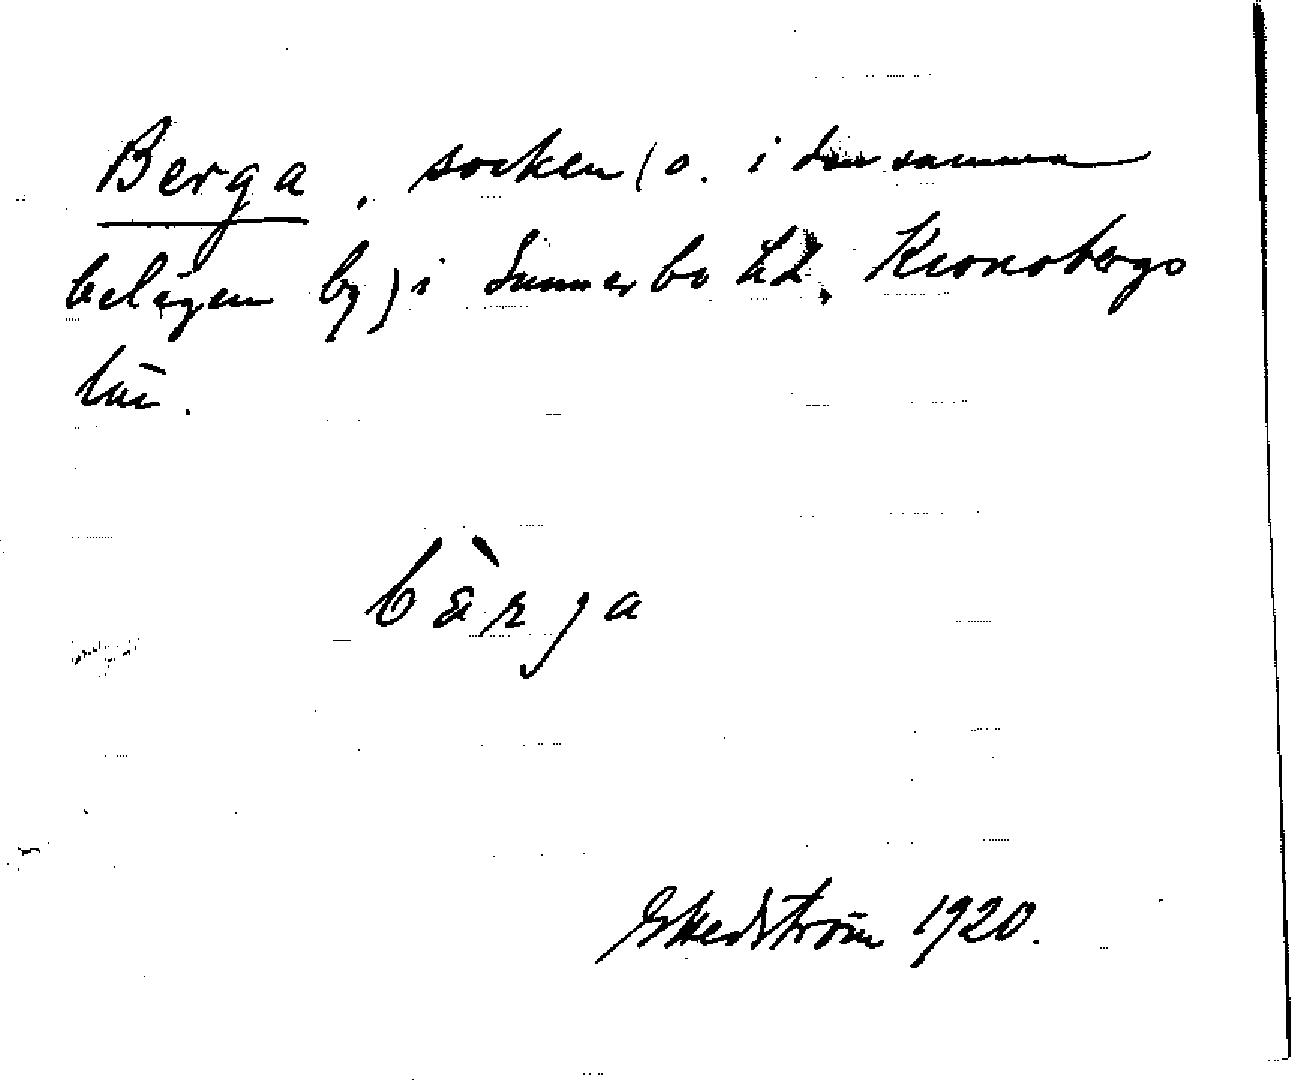 Berga, socken (o. i densamma
belägen by) i Sunnerbo hd, Kronobergs
län.
bàrja
Hedström 1920.